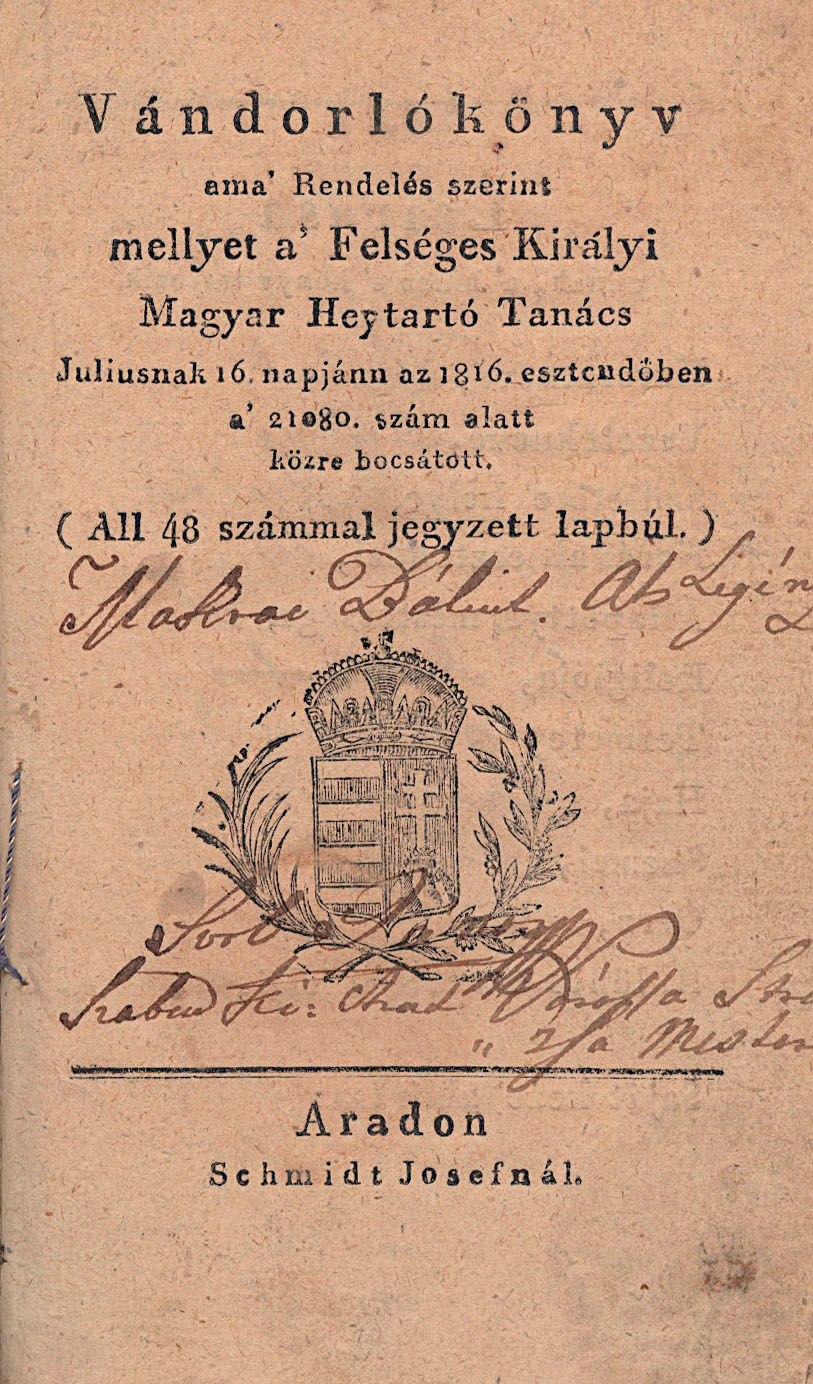 Vándorlókönyv
ama' Rendelés szerint
mellyet a' Felséges Királyi
Magyar Heytartó Tanács
Juliusnak 16. napjánn az 1816. esztendőben
a' 21080. szám alatt
közre bocsátott.
( All 48 számmal jegyzett lapbúl. )
Makrai Bálint. Ats Legény
Szabad Ki: Arad Várossa
Aradon
Schmidt Josefnál.